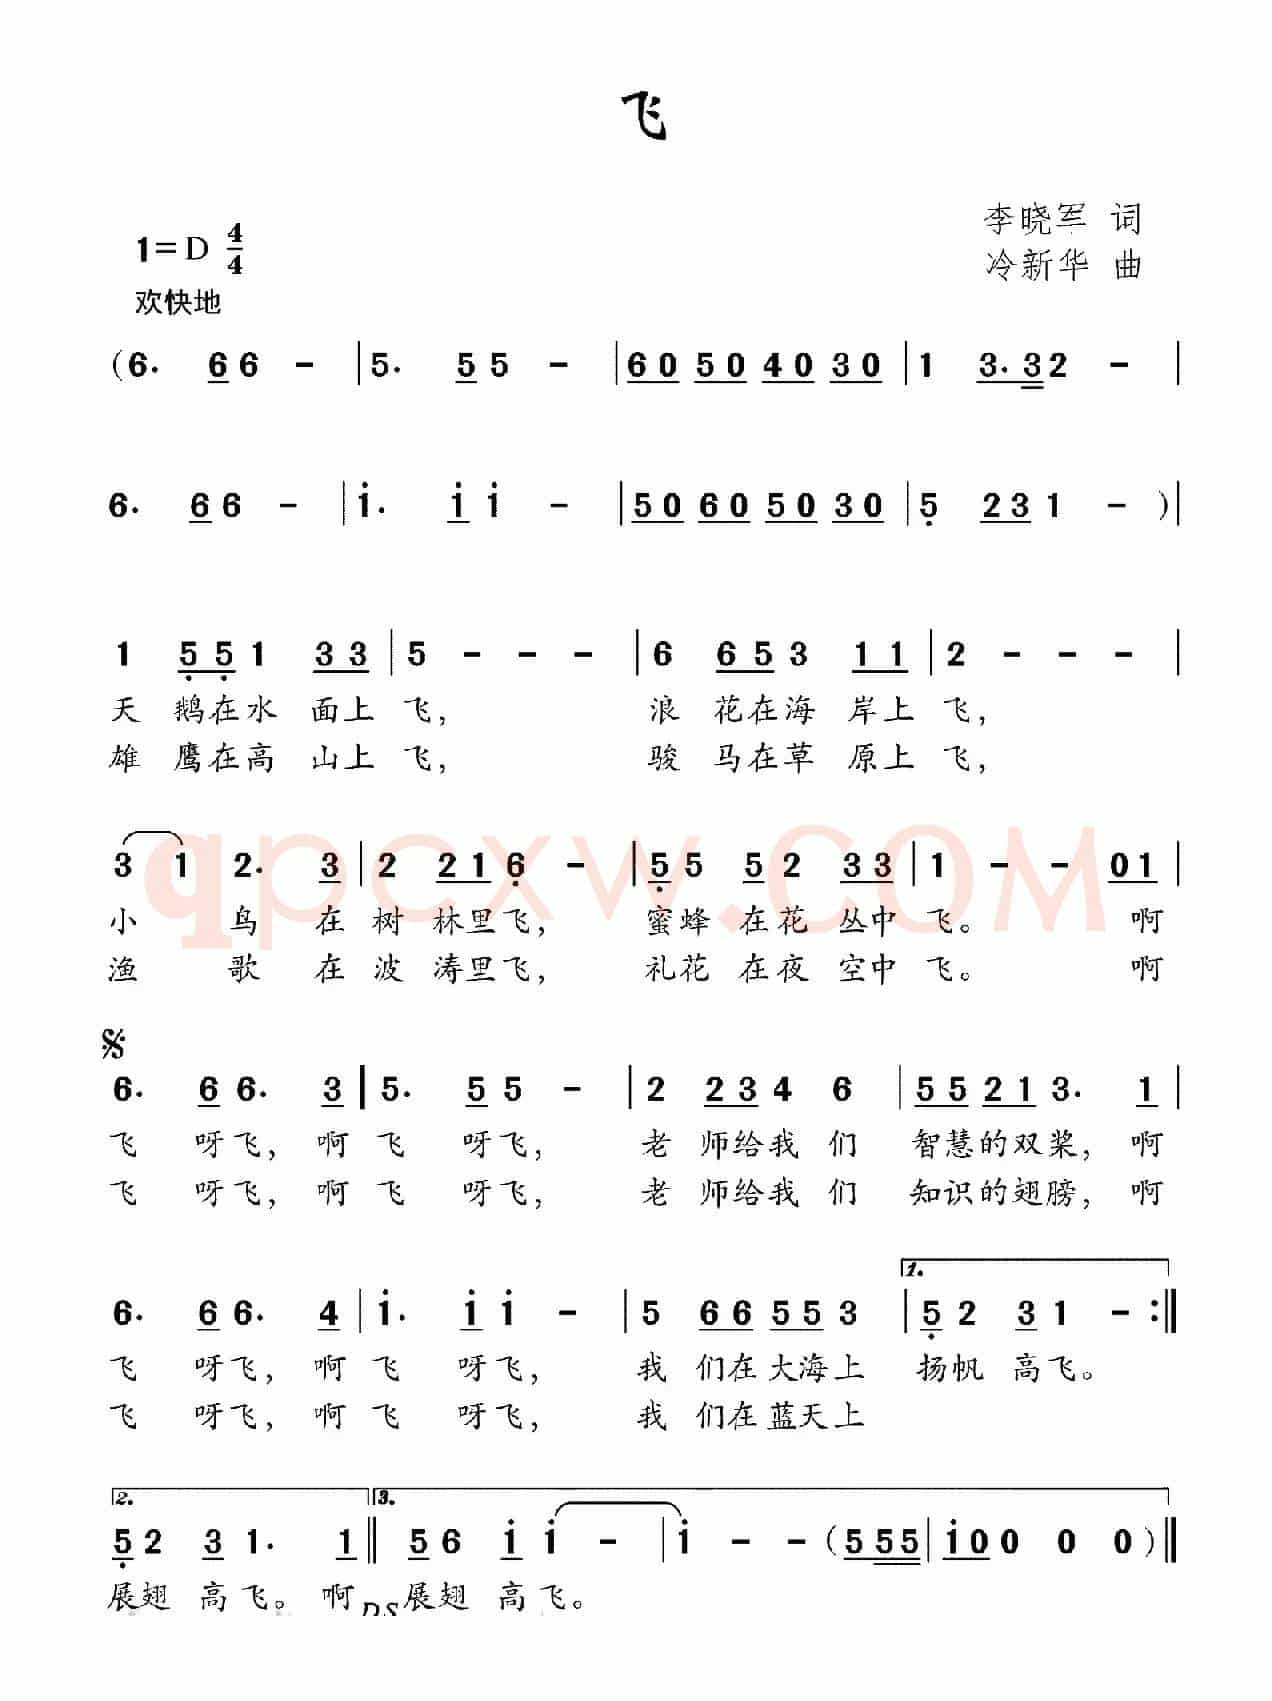 飞
李晓军 词
1=D 4/4
冷新华 曲
欢快地
(6. 6 6 - | 5. 5 5 - | 60 50 40 30 | 1 3. 3 2 - |
6. 6 6 - | i. i i - | 50 60 50 30 | 5 23 1 - ) |
1 55 1 33 | 5 - - - | 6 65 3 11 | 2 - - - |
天 鹅在水 面上 飞, 浪 花在海 岸上 飞,
雄 鹰在高 山上 飞, 骏 马在草 原上 飞,
3 1 2. 3 | 2 21 6 - | 5 5 5 2 33 | 1 - - 01 |
小 鸟 在 树 林里飞, 蜜蜂 在花 丛中 飞。 啊
渔 歌 在 波 涛里飞, 礼花 在夜 空中 飞。 啊
qpcxw.COM
𝄋
6. 6 6. 3 | 5. 5 5 - | 2 23 4 6 | 55 21 3. 1 |
飞 呀飞, 啊 飞 呀飞, 老 师给我 们 智慧的双桨, 啊
飞 呀飞, 啊 飞 呀飞, 老 师给我 们 知识的翅膀, 啊
1.
6. 6 6. 4 | i. i i - | 5 66 55 3 | 5 2 3 1 - :||
飞 呀飞, 啊 飞 呀飞, 我 们在大海上 扬帆 高飞。
飞 呀飞, 啊 飞 呀飞, 我 们在蓝天上
2. 3.
5 2 3 1. 1 || 5 6 i i - | i - - ( 555 | i0 0 0 0 ) ||
展翅 高飞。 啊 D.S 展翅 高飞。